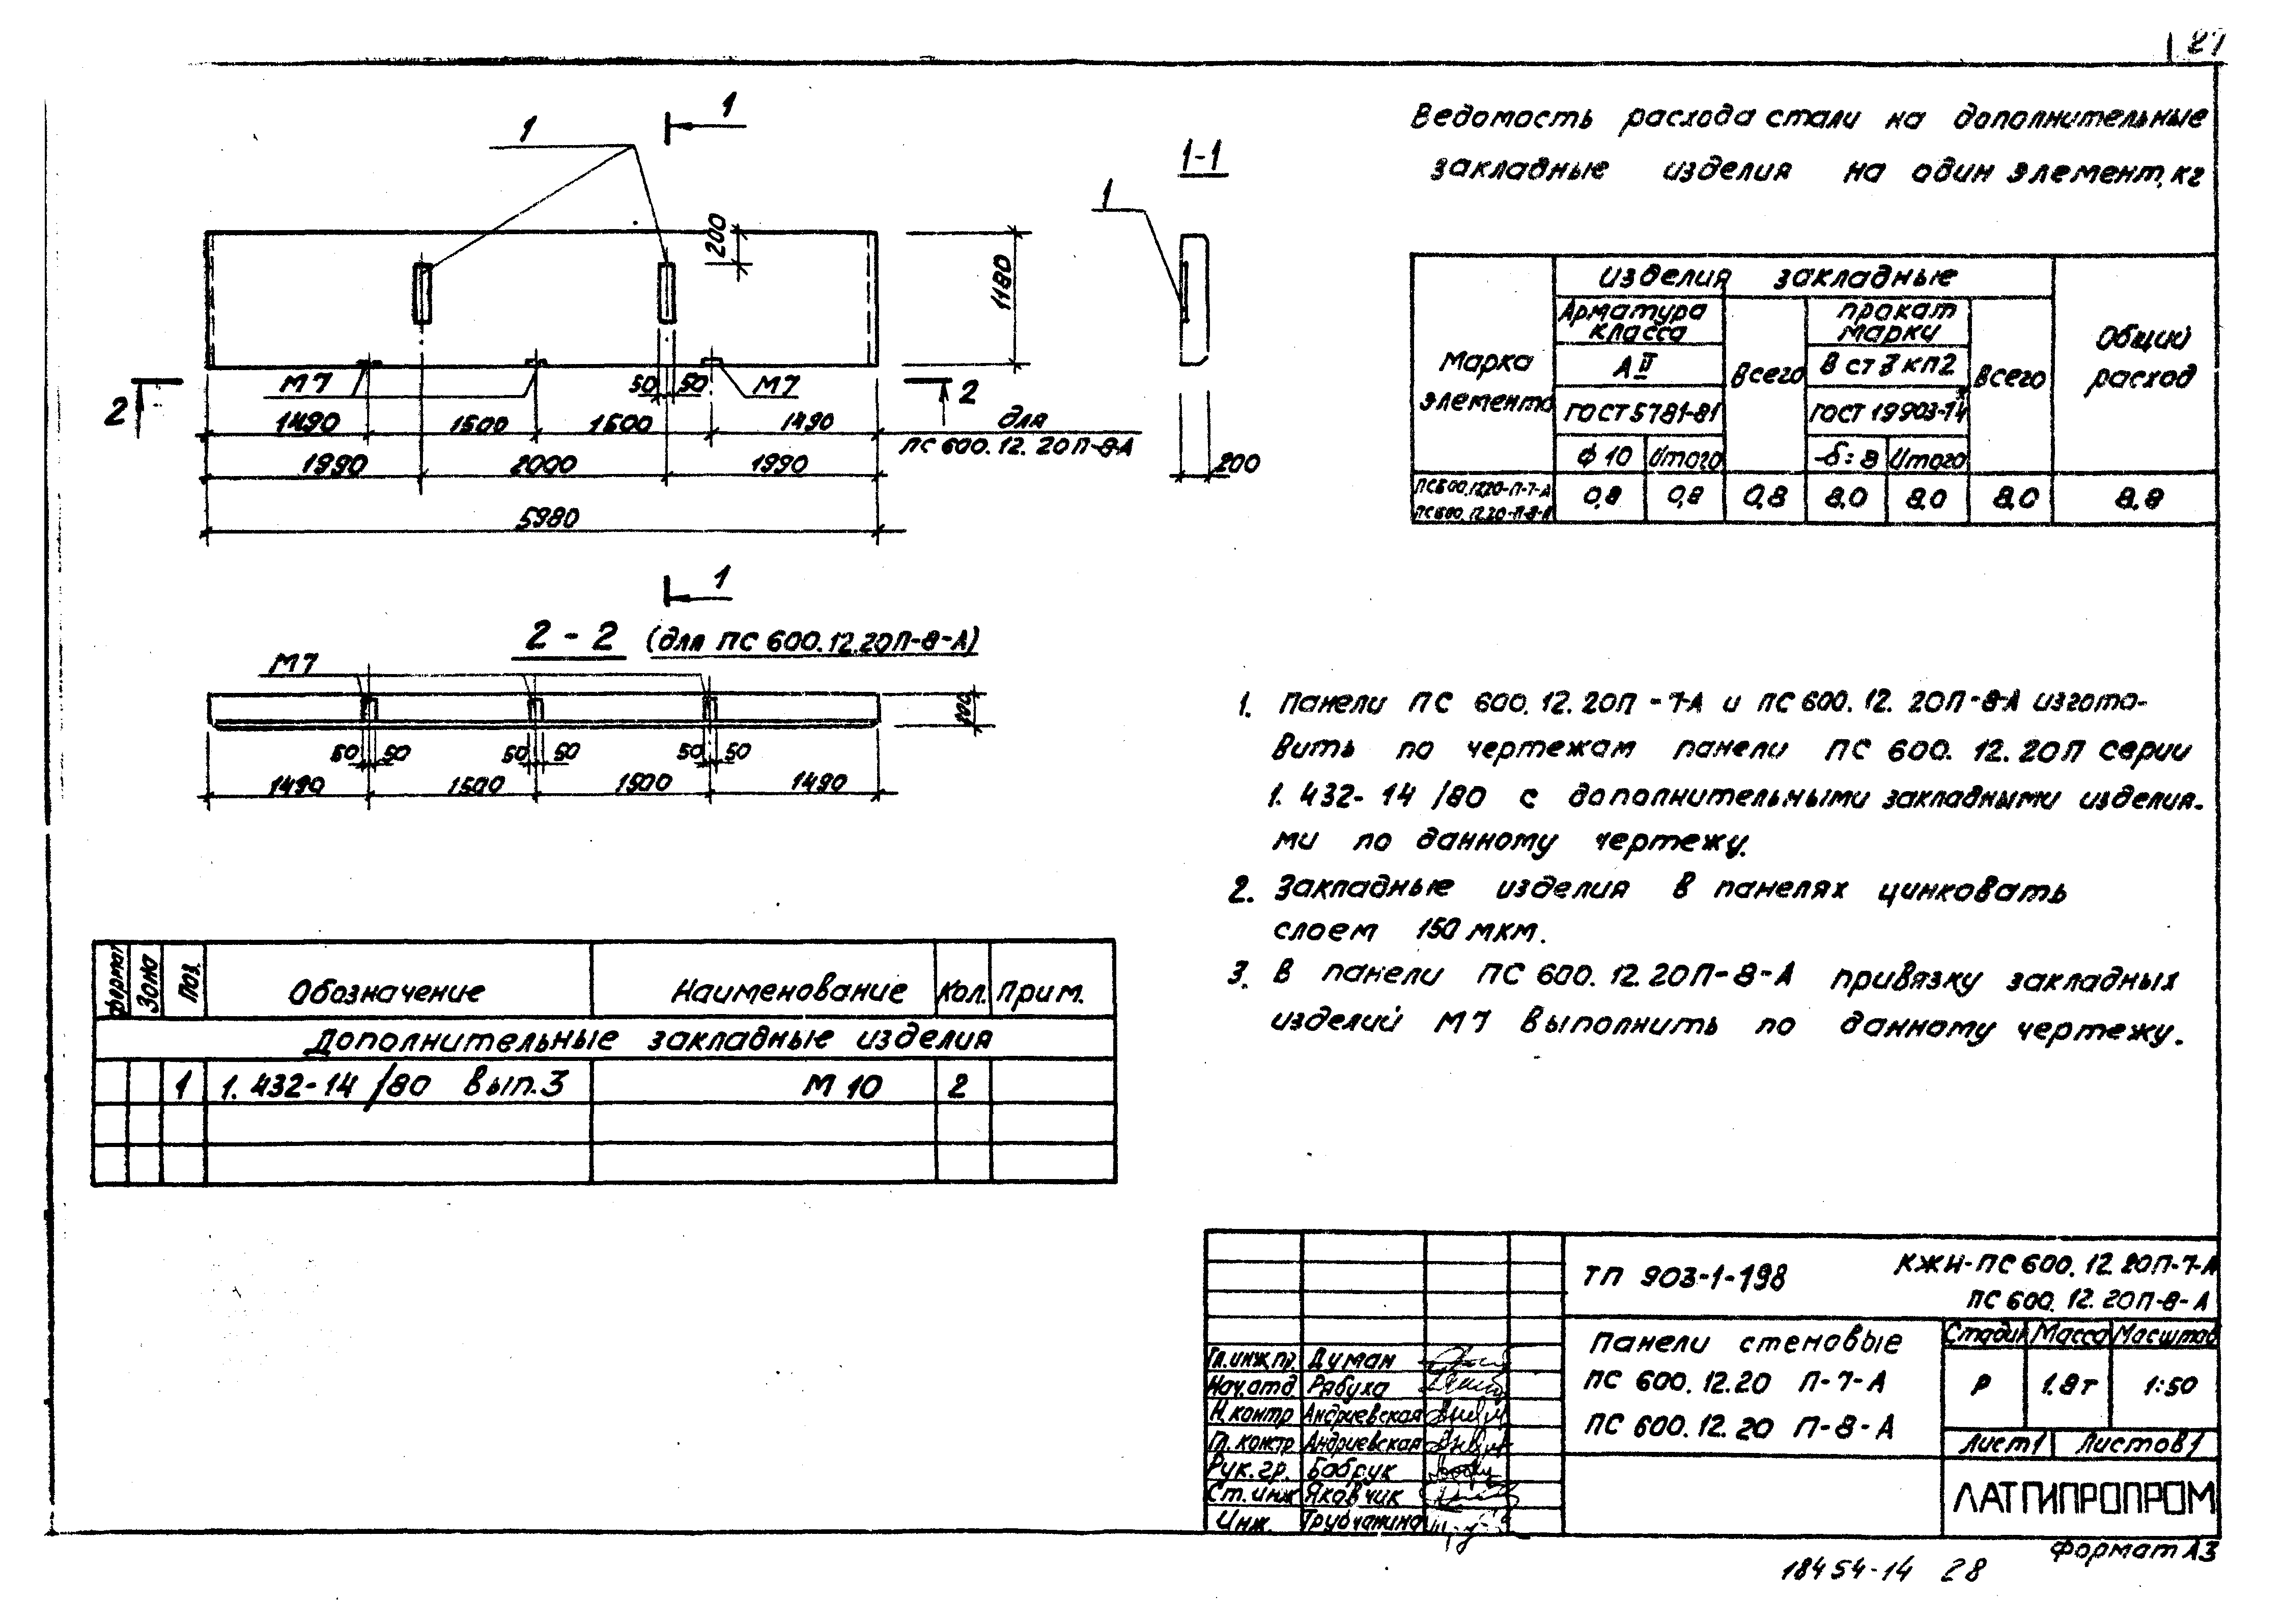 27
1
1
200
1180
М7
50 50
М7
2
2
1490 1500 1500 1490 для
ПС 600.12.20П-8-А
1990 2000 1990
5980
1
1-1
1
200
2-2 (для ПС 600.12.20П-8-А)
М7
200
50 50 50 50 50 50
1490 1500 1500 1490
Ведомость расхода стали на дополнительные
закладные изделия на один элемент, кг
Марка элемента
Изделия закладные
Общий расход
Арматура класса
Всего
Прокат марки
Всего
А II
В ст 3 кп2
ГОСТ 5781-81
ГОСТ 19903-74*
ф 10 Итого
-δ=8 Итого
ПС600.12.20-П-7-А
ПС600.12.20-П-8-А
0,8 0,8 0,8 8.0 8.0 8.0 8.8
1. Панели ПС 600.12.20П-7-А и ПС 600.12.20П-8-А изгото-
вить по чертежам панели ПС 600.12.20П серии
1.432-14/80 с дополнительными закладными изделия-
ми по данному чертежу.
2. Закладные изделия в панелях цинковать
слоем 150 мкм.
3. В панели ПС 600.12.20П-8-А привязку закладных
изделий М7 выполнить по данному чертежу.
Формат Зона Поз. Обозначение Наименование Кол. Прим.
Дополнительные закладные изделия
1 1.432-14/80 вып.3 М 10 2
ТП 903-1-198
КЖИ-ПС 600.12.20П-7-А
ПС 600.12.20П-8-А
Панели стеновые
ПС 600.12.20 П-7-А
ПС 600.12.20 П-8-А
Стадия Масса Масштаб
Р 1.8т 1:50
Лист 1 Листов 1
ЛАТГИПРОПРОМ
Гл.инж.пр. Думан
Нач.отд Рябуха
Н.контр Андриевская
Гл.констр Андриевская
Рук.гр. Бобрук
Ст.инж Яковчик
Инж. Трубчанина
Формат А3
18454-14 28